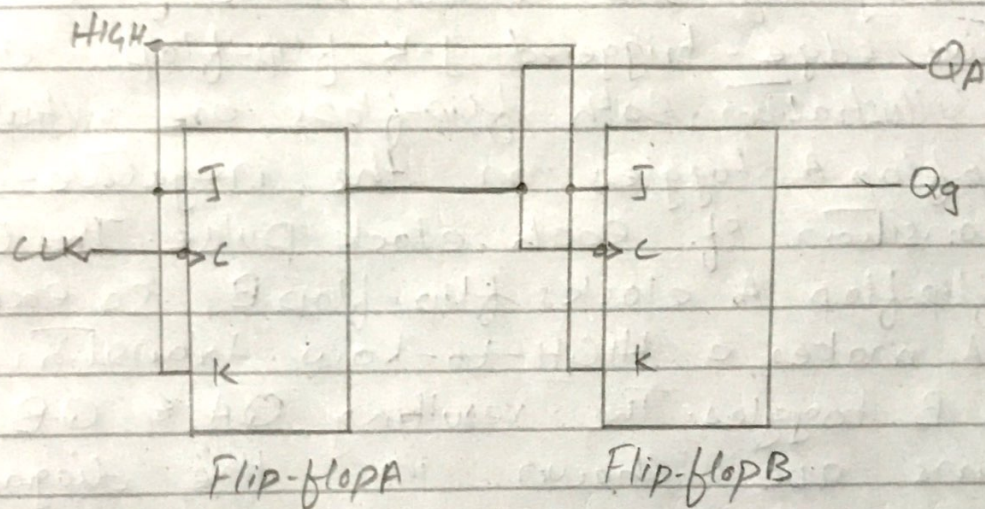 HIGH
QA
J
J
Qg
CLK
C
C
K
K
Flip-flopA
Flip-flopB